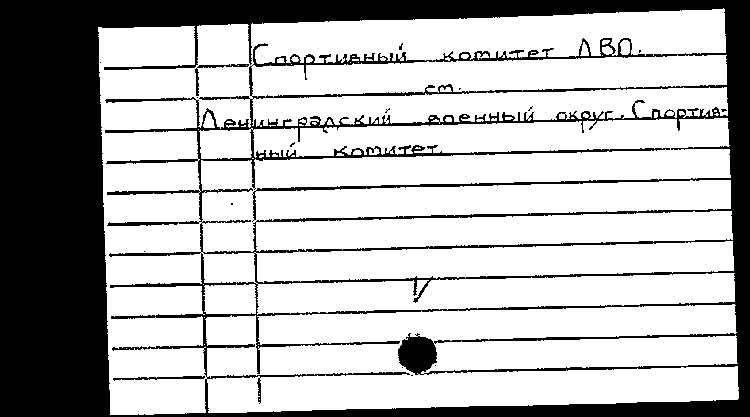 Спортивный комитет ЛВО.
см.
Ленинградский военный округ. Спортив-
ный комитет.
V